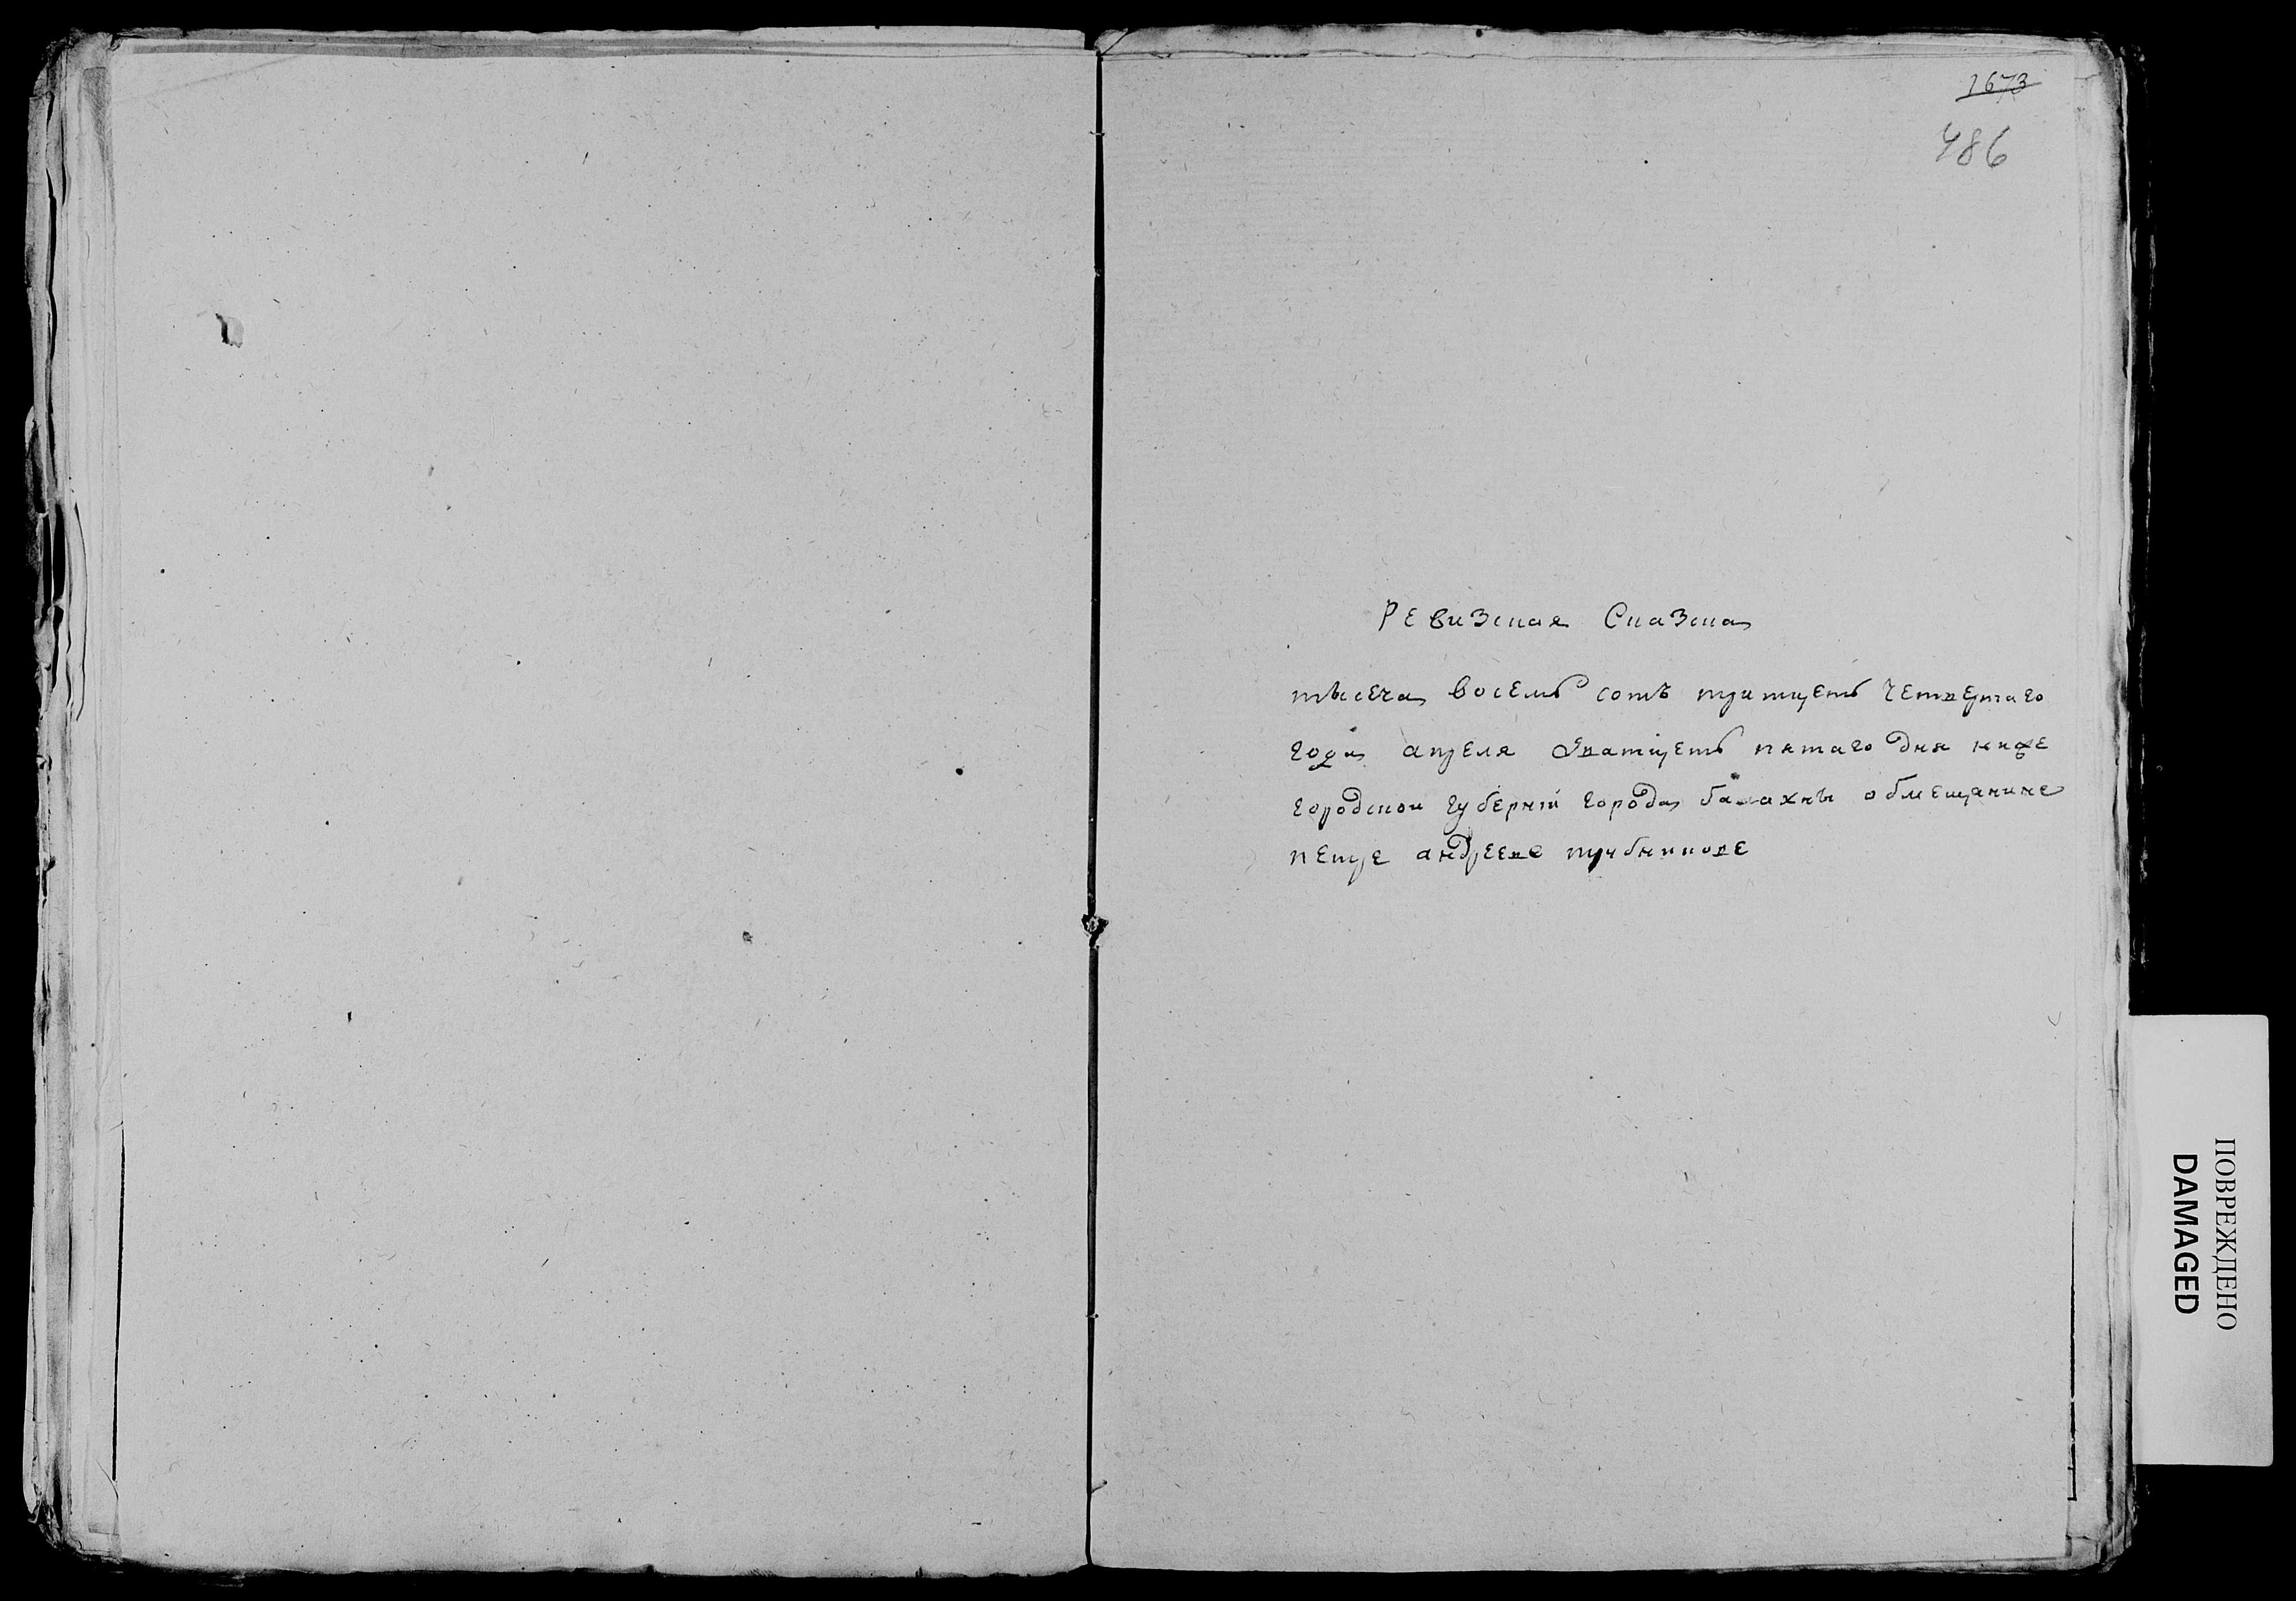 1673
486
Ревизская Сказка
тысеча восемь сотъ тритцеть четвертаго
года апреля дватцеть пятаго дня ниже
городской губернїи города балахны обмещанине
петре андрееве трубникове
ПОВРЕЖДЕНО
DAMAGED